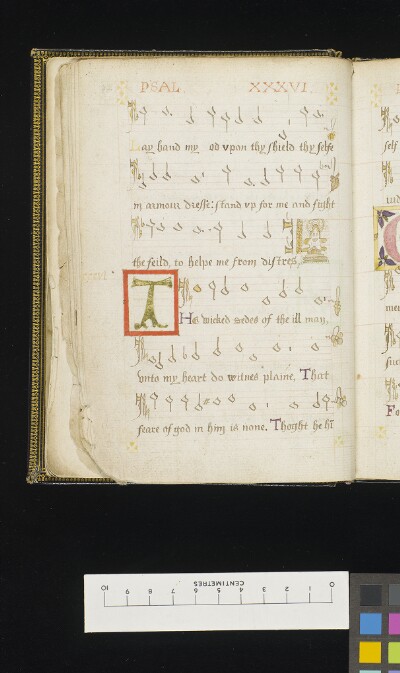 PSAL. XXXVI
Lay hand my od vpon thy shield thy selfe
in armour dresse: stand vp for me and fight
the feild, to helpe me from distres,
THe wicked dedes of the ill man,
vnto my heart do witnes plaine, That
feare of god in him is none. Thoght he hī
self
Fo
CENTIMETRES
10 9 8 7 6 5 4 3 2 1 0